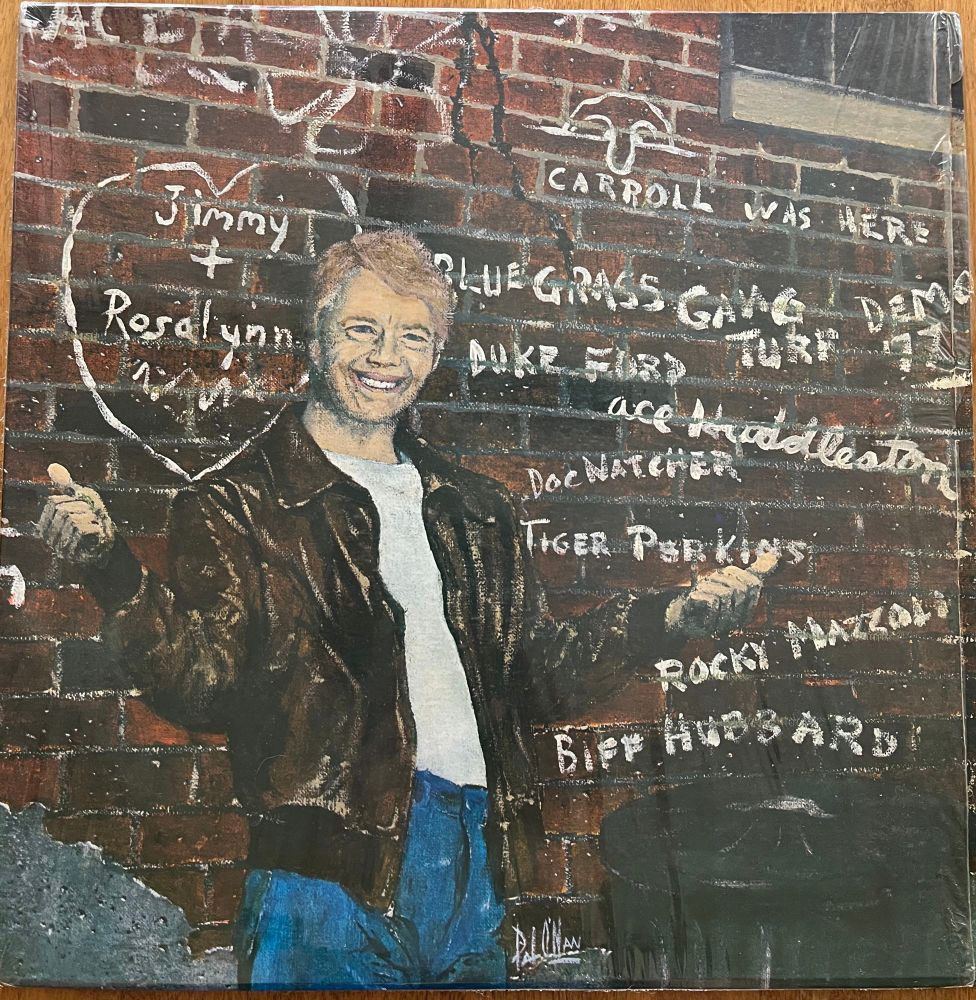 Jimmy
+
Rosalynn
CARROLL WAS HERE
BLUE GRASS GANG
TURF
DUKE FORD
ace Huddleston
DOC NATCHER
TIGER PERKINS
ROCKY MAZZOLI
BIFF HUBBARD